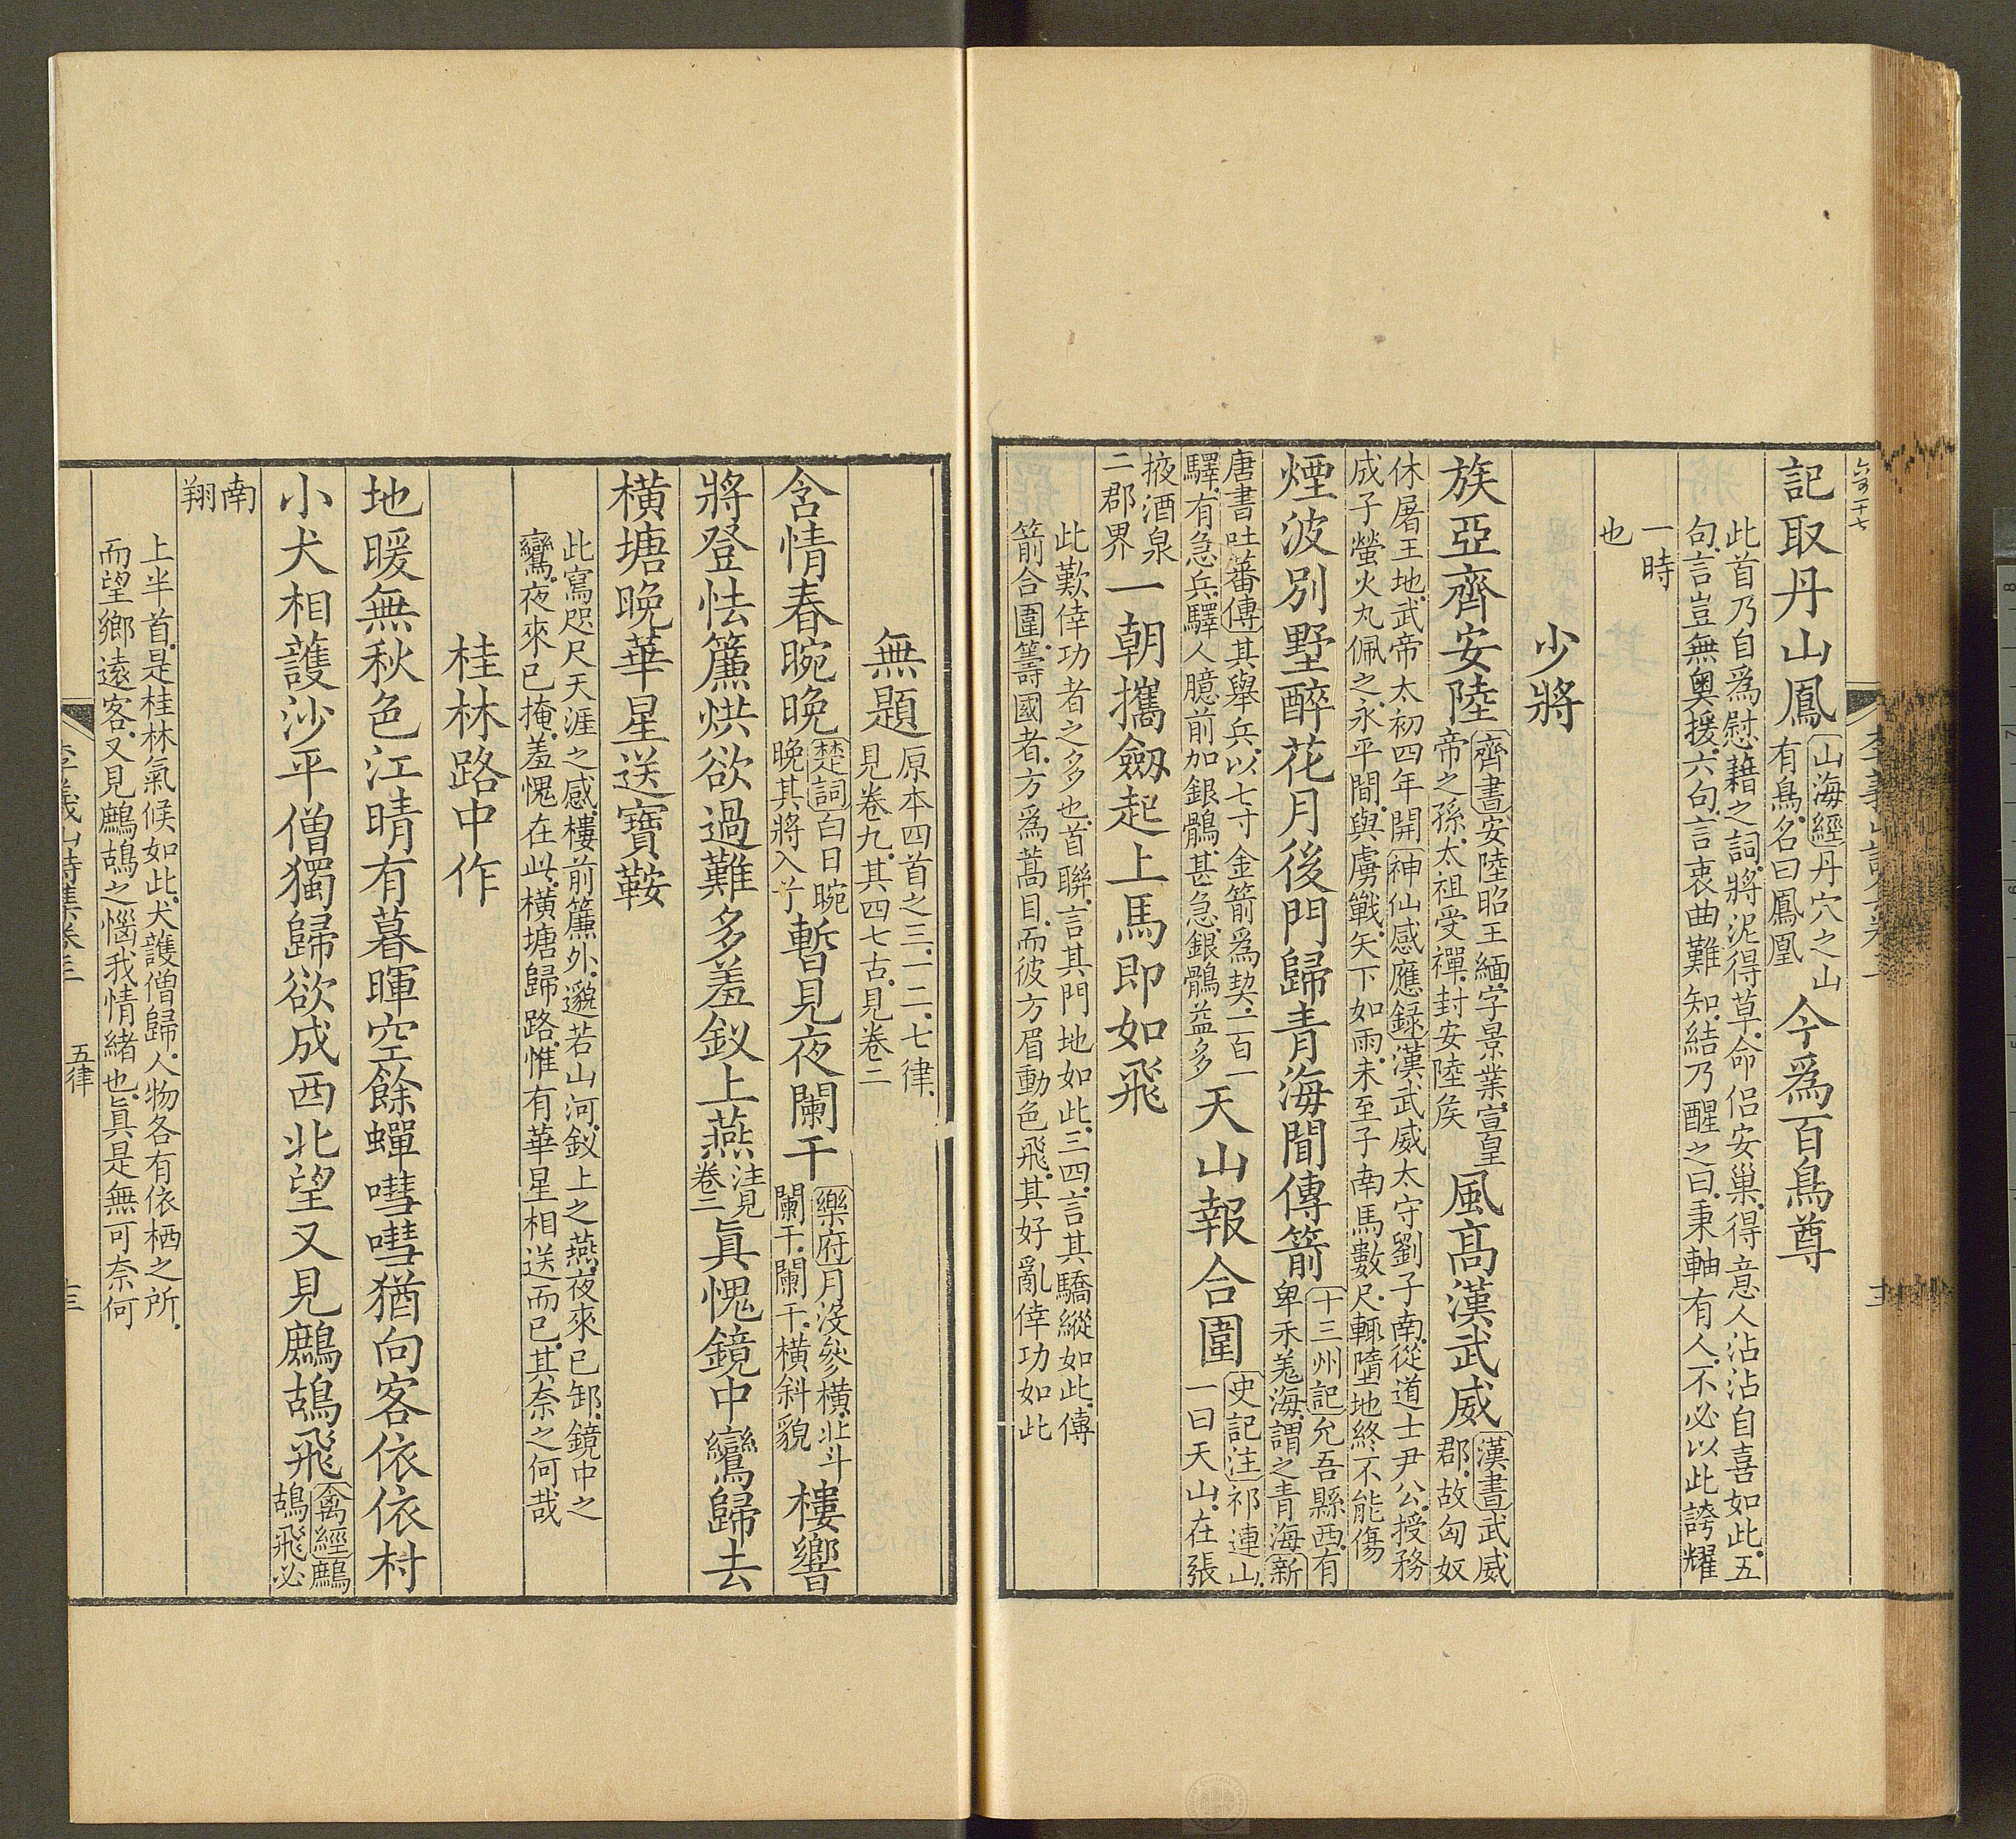 記取丹山鳳山海經丹穴之山有鳥名曰鳳凰今爲百鳥尊
此首乃自爲慰藉之詞將泥得草命侶安巢得意人沾沾自喜如此五
句言豈無奧援六句言衷曲難知結乃醒之曰秉軸有人不必以此誇耀
一時
也
少將
族亞齊安陸齊書安陸昭王緬字景業宣皇帝之孫太祖受禪封安陸矦風高漢武威漢書武威郡故匈奴
休屠王地武帝太初四年開神仙感應録漢武威太守劉子南從道士尹公授務
成子螢火丸佩之永平間與虜戰矢下如雨未至子南馬數尺輒墮地終不能傷
煙波別墅醉花月後門歸青海聞傳箭十三州記允吾縣西有卑禾羗海謂之青海新
唐書吐蕃傳其舉兵以七寸金箭爲契百里一
驛有急兵驛人臆前加銀鶻甚急銀鶻益多天山報合圍史記注祁連山一曰天山在張
掖酒泉
二郡界一朝攜劒起上馬即如飛
此歎倖功者之多也首聯言其門地如此三四言其驕縱如此傳
箭合圍籌國者方爲蒿目而彼方眉動色飛其好亂倖功如此
無題原本四首之三一二七律見卷九其四七古見卷二
含情春晼晚楚詞白日晼晚其將入兮暫見夜闌干樂府月没參橫北斗闌干闌干橫斜貌樓響
將登怯簾烘欲過難多羞釵上燕注見卷二眞愧鏡中鸞歸去
橫塘晚華星送寶鞍
此寫咫尺天涯之感樓前簾外邈若山河釵上之燕夜來已卸鏡中之
鸞夜來已掩羞愧在此橫塘歸路惟有華星相送而已其奈之何哉
桂林路中作
地暖無秋色江晴有暮暉空餘蟬嘒嘒猶向客依依村
小犬相護沙平僧獨歸欲成西北望又見鷓鴣飛禽經鷓鴣飛必
南
翔
上半首是桂林氣候如此犬護僧歸人物各有依栖之所
而望鄉遠客又見鷓鴣之惱我情緒也眞是無可奈何
李義山詩集卷三
五律